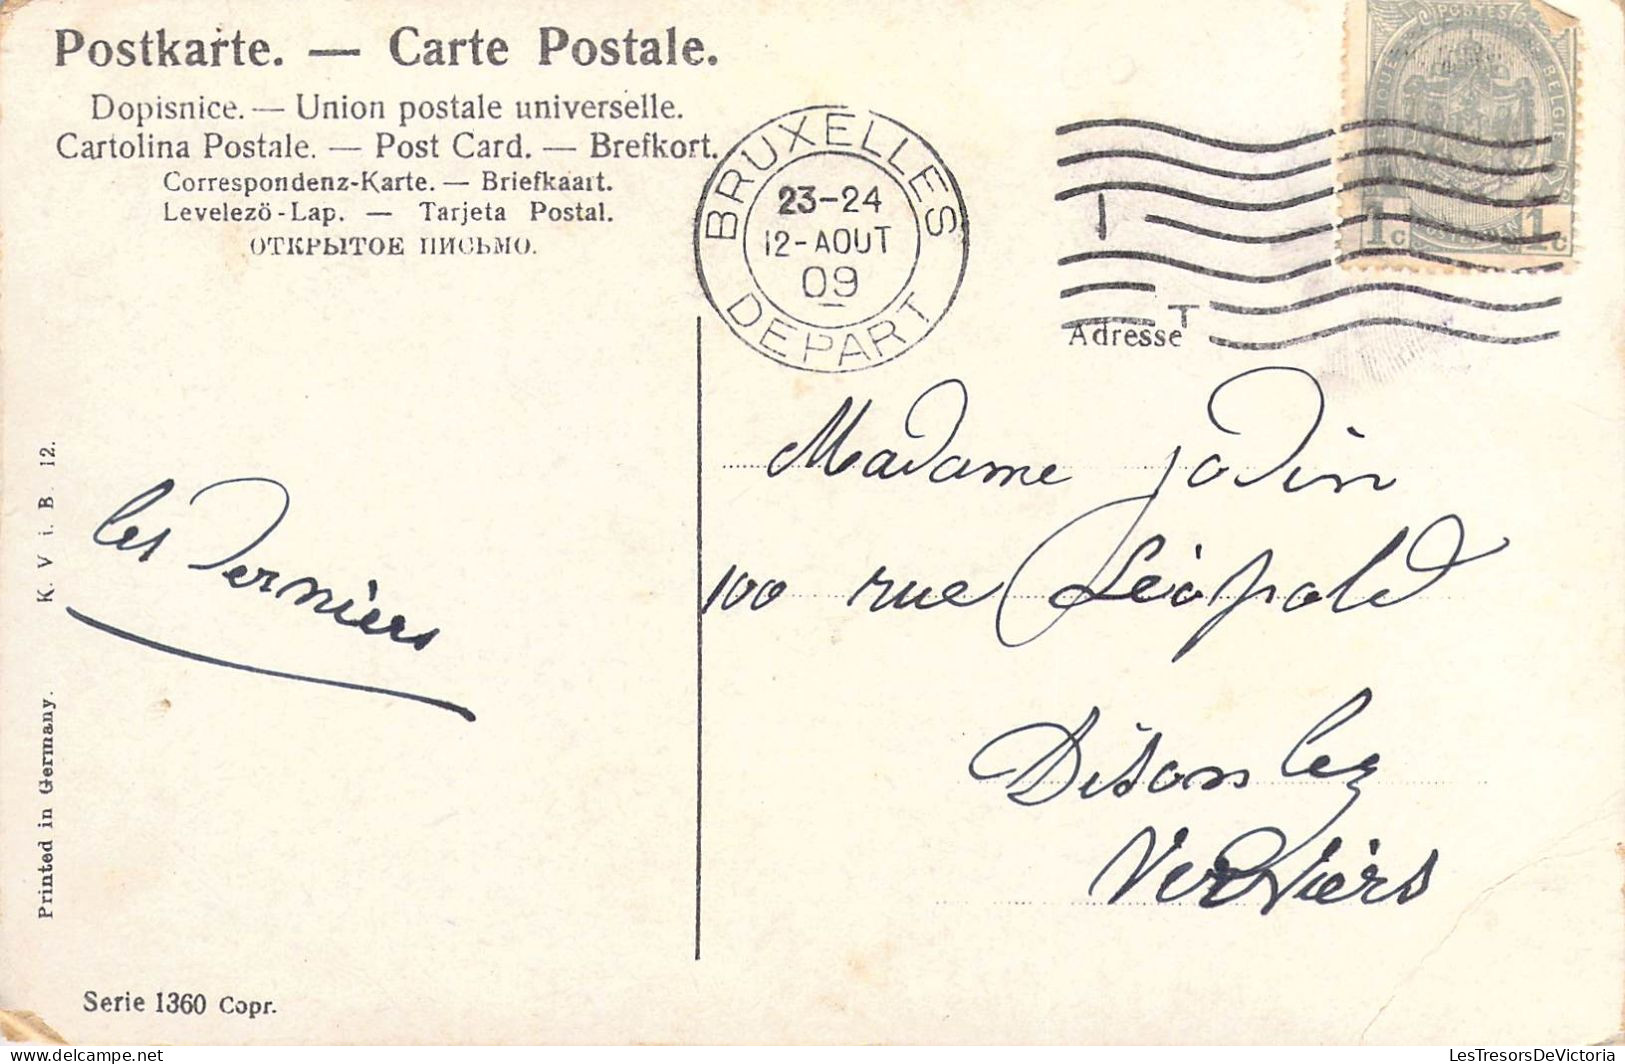 Postkarte. — Carte Postale.
Dopisnice. — Union postale universelle.
Cartolina Postale. — Post Card. — Brefkort.
Correspondenz-Karte. — Briefkaart.
Levelezö-Lap. — Tarjeta Postal.
ОТКРЫТОЕ ПИСЬМО.
BRUXELLES
23-24
12-AOUT
09
DEPART
POSTES
BELGIQUE
BELGIE
1c 1c
Adresse
Madame Jodin
100 rue Léopold
Dison lez
Verviers
les Derniers
K. V i. B. 12.
Printed in Germany.
Serie 1360 Copr.
delcampe.net
LesTresorsDeVictoria